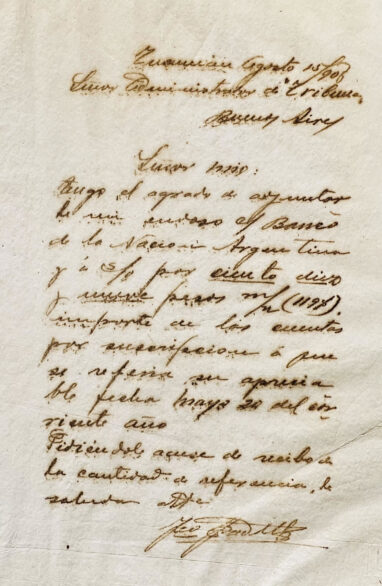 Tucumán Agosto 15/906
Señor Administrador de "Tribuna"
Buenos Aires
Señor mio:
Tengo el agrado de adjuntar
le mi endoso c/ Banco
de la Nacion Argentina
y á S/o por ciento diez
y nueve pesos m/n (119$),
importe de las cuentas
por suscripcion á que
se refiere su aprecia
ble fecha Mayo 24 del cor
riente año
Pidiéndole acuse de recibo de
la cantidad de referencia, le
saluda atte